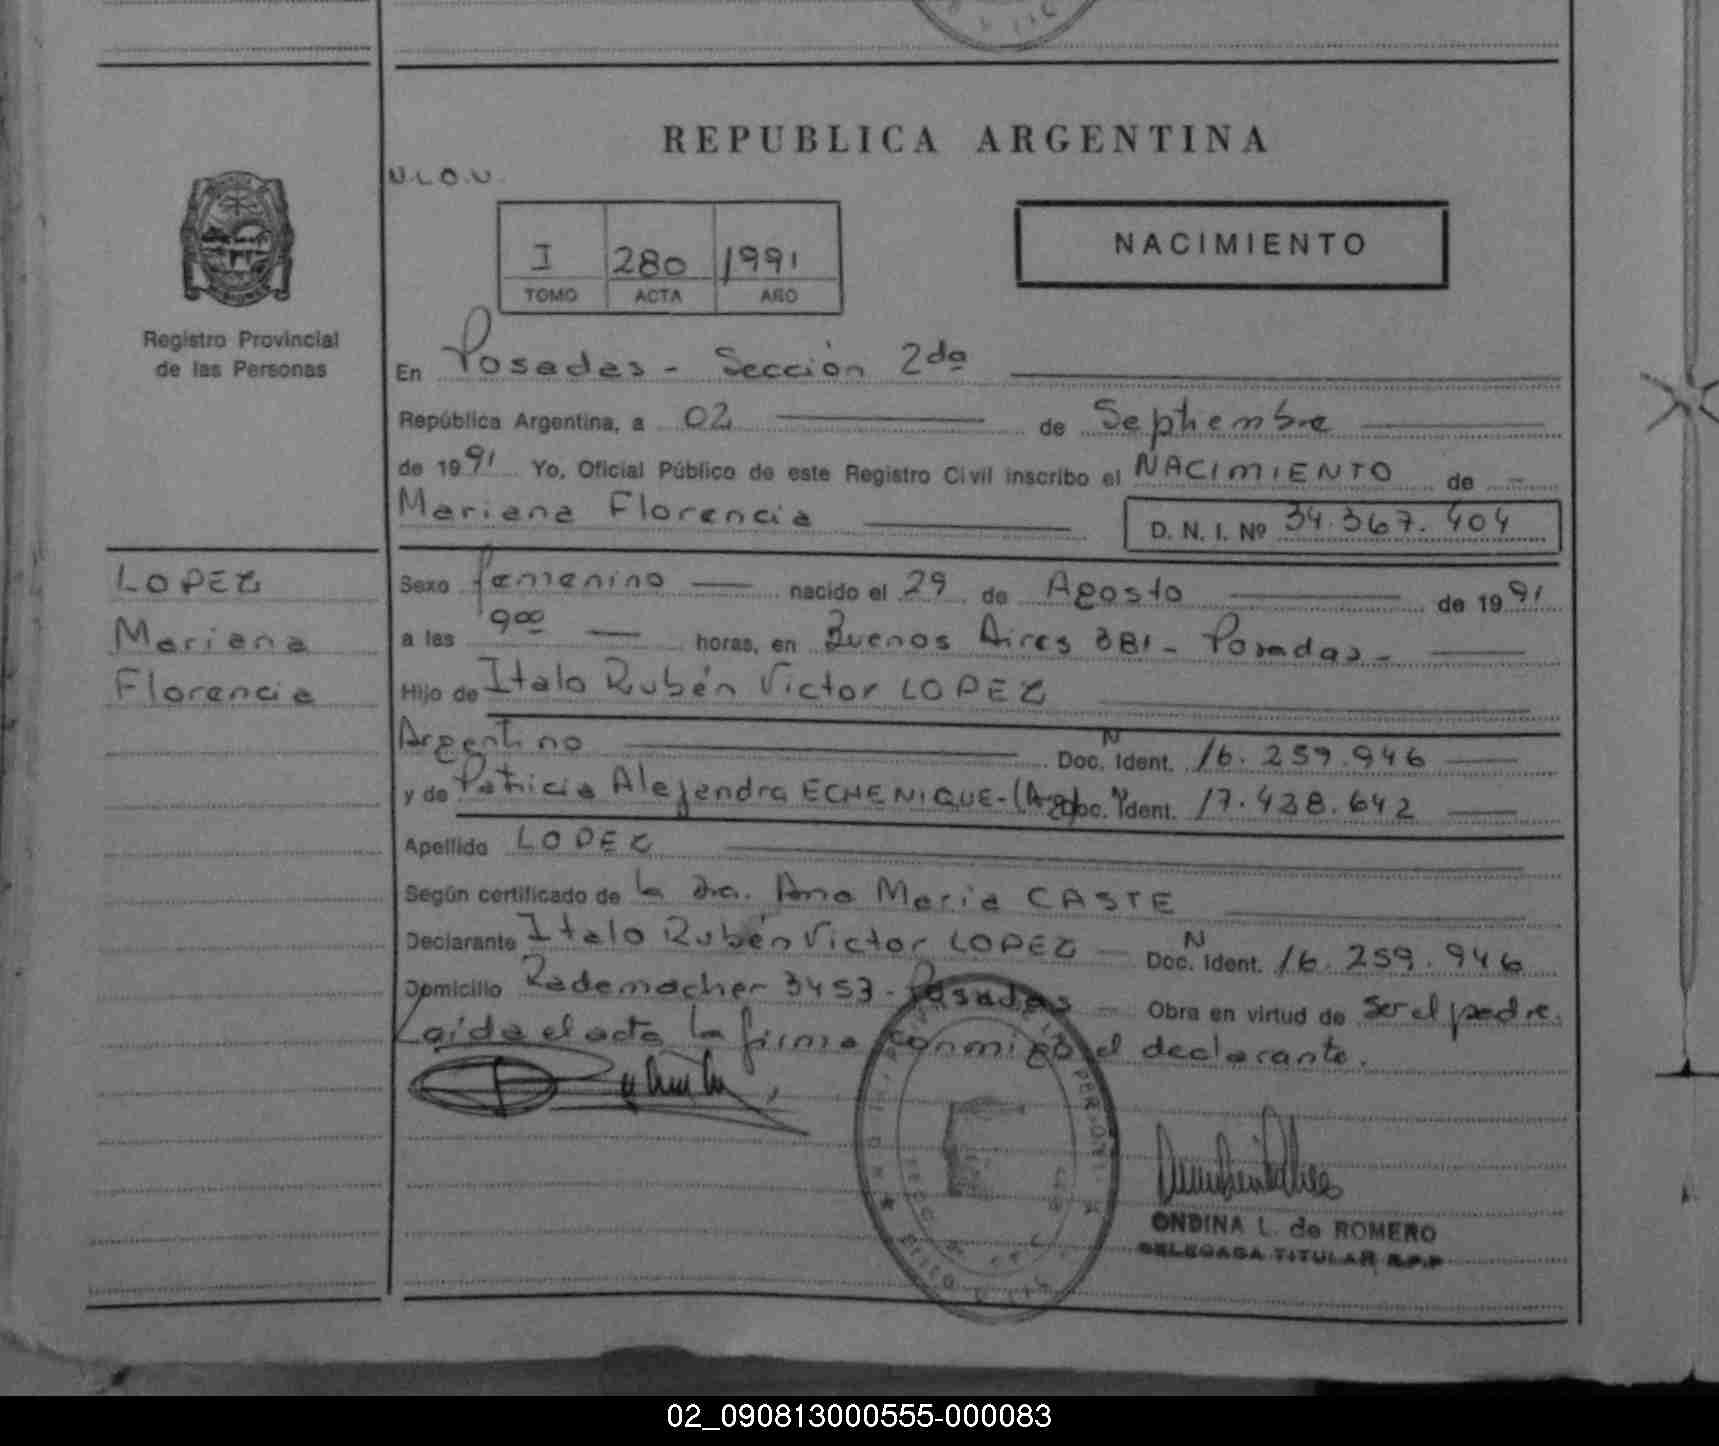 REPUBLICA ARGENTINA
N.L.O.V.
I 280 1991
TOMO ACTA AÑO
NACIMIENTO
Registro Provincial
de las Personas
En Posadas - Sección 2da
República Argentina, a 02 de Septiembre
de 1991 Yo, Oficial Público de este Registro Civil inscribo el NACIMIENTO de -
Mariana Florencia D. N. I. Nº 34.367.404
LOPEZ
Mariana
Florencia
Sexo femenino nacido el 29 de Agosto de 1991
a las 9oo horas, en Buenos Aires 381 - Posadas -
Hijo de Italo Rubén Victor LOPEZ
Argentino Doc. N Ident. 16.259.946
y de Patricia Alejandra ECHENIQUE - (Arg) Doc. N Ident. 17.438.642
Apellido LOPEZ
Según certificado de la Dra. Ana Maria CASTE
Declarante Italo Rubén Victor LOPEZ - Doc. N Ident. 16.259.946
Domicilio Rademacher 3453 - Posadas - Obra en virtud de ser el padre.
Leída el acta la firma conmigo el declarante.
ONDINA L. de ROMERO
DELEGADA TITULAR R.P.P
02_090813000555-000083